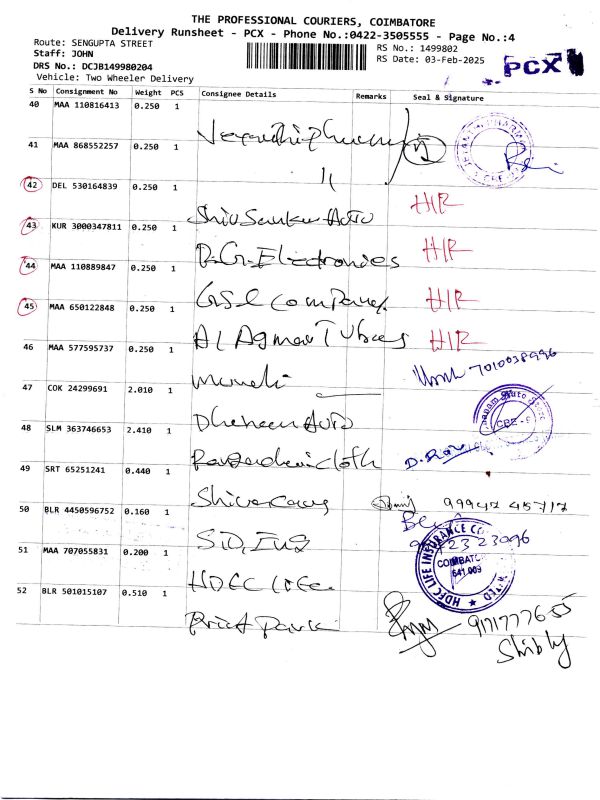 THE PROFESSIONAL COURIERS, COIMBATORE
Delivery Runsheet - PCX - Phone No.:0422-3505555 - Page No.:4
Route: SENGUPTA STREET
RS No.: 1499802
Staff: JOHN
RS Date: 03-Feb-2025
DRS No.: DCJB149980204
PCX
Vehicle: Two Wheeler Delivery
S No Consignment No Weight PCS Consignee Details Remarks Seal & Signature
40 MAA 110816413 0.250 1
41 MAA 868552257 0.250 1 "
42 DEL 530164839 0.250 1 Shiv Sankar Auto HIR
43 KUR 3000347811 0.250 1 D.G. Electronics HIR
44 MAA 110889847 0.250 1 GSL Company HIR
45 MAA 650122848 0.250 1 Al Agmar Tubes HIR
46 MAA 577595737 0.250 1 7010038996
47 COK 24299691 2.010 1 Auto
CBE - 9
48 SLM 363746653 2.410 1 Cloth
49 SRT 65251241 0.440 1 99947 45717
50 BLR 4450596752 0.160 1
51 MAA 707055831 0.200 1 HDFC Life
HDFC LIFE INSURANCE CO
COIMBATORE
641 009
LIMITED
52 BLR 501015107 0.510 1 9171777655
Shibly